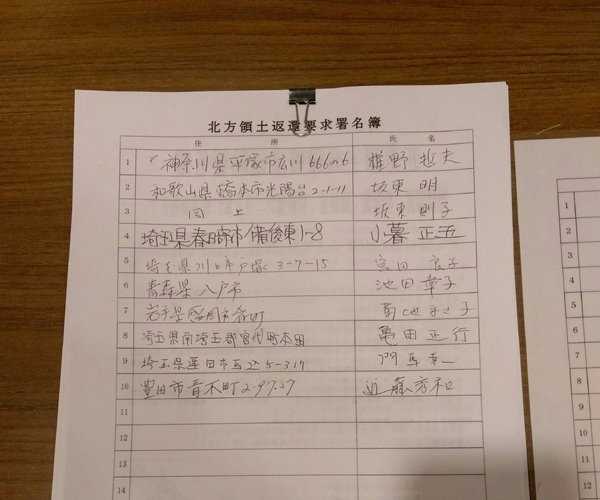 北方領土返還要求署名簿
住 所 氏 名
1 神奈川県平塚市広川 666の6 椎野 哲夫
2 和歌山県橋本市光陽台2-1-11 坂東 明
3 同 上 坂東 則子
4 埼玉県春日部市備後東1-8 小暮 正五
5 埼玉県川口市戸塚 3-7-15 宮田 良子
6 青森県 八戸市 池田 章子
7 岩手県盛岡市 菊池
8 埼玉県南埼玉郡宮代町本田 亀田 正行
9 埼玉県蓮田市 5-317
10 豊田市青木町2-97-27 近藤秀和
11
12
13
14